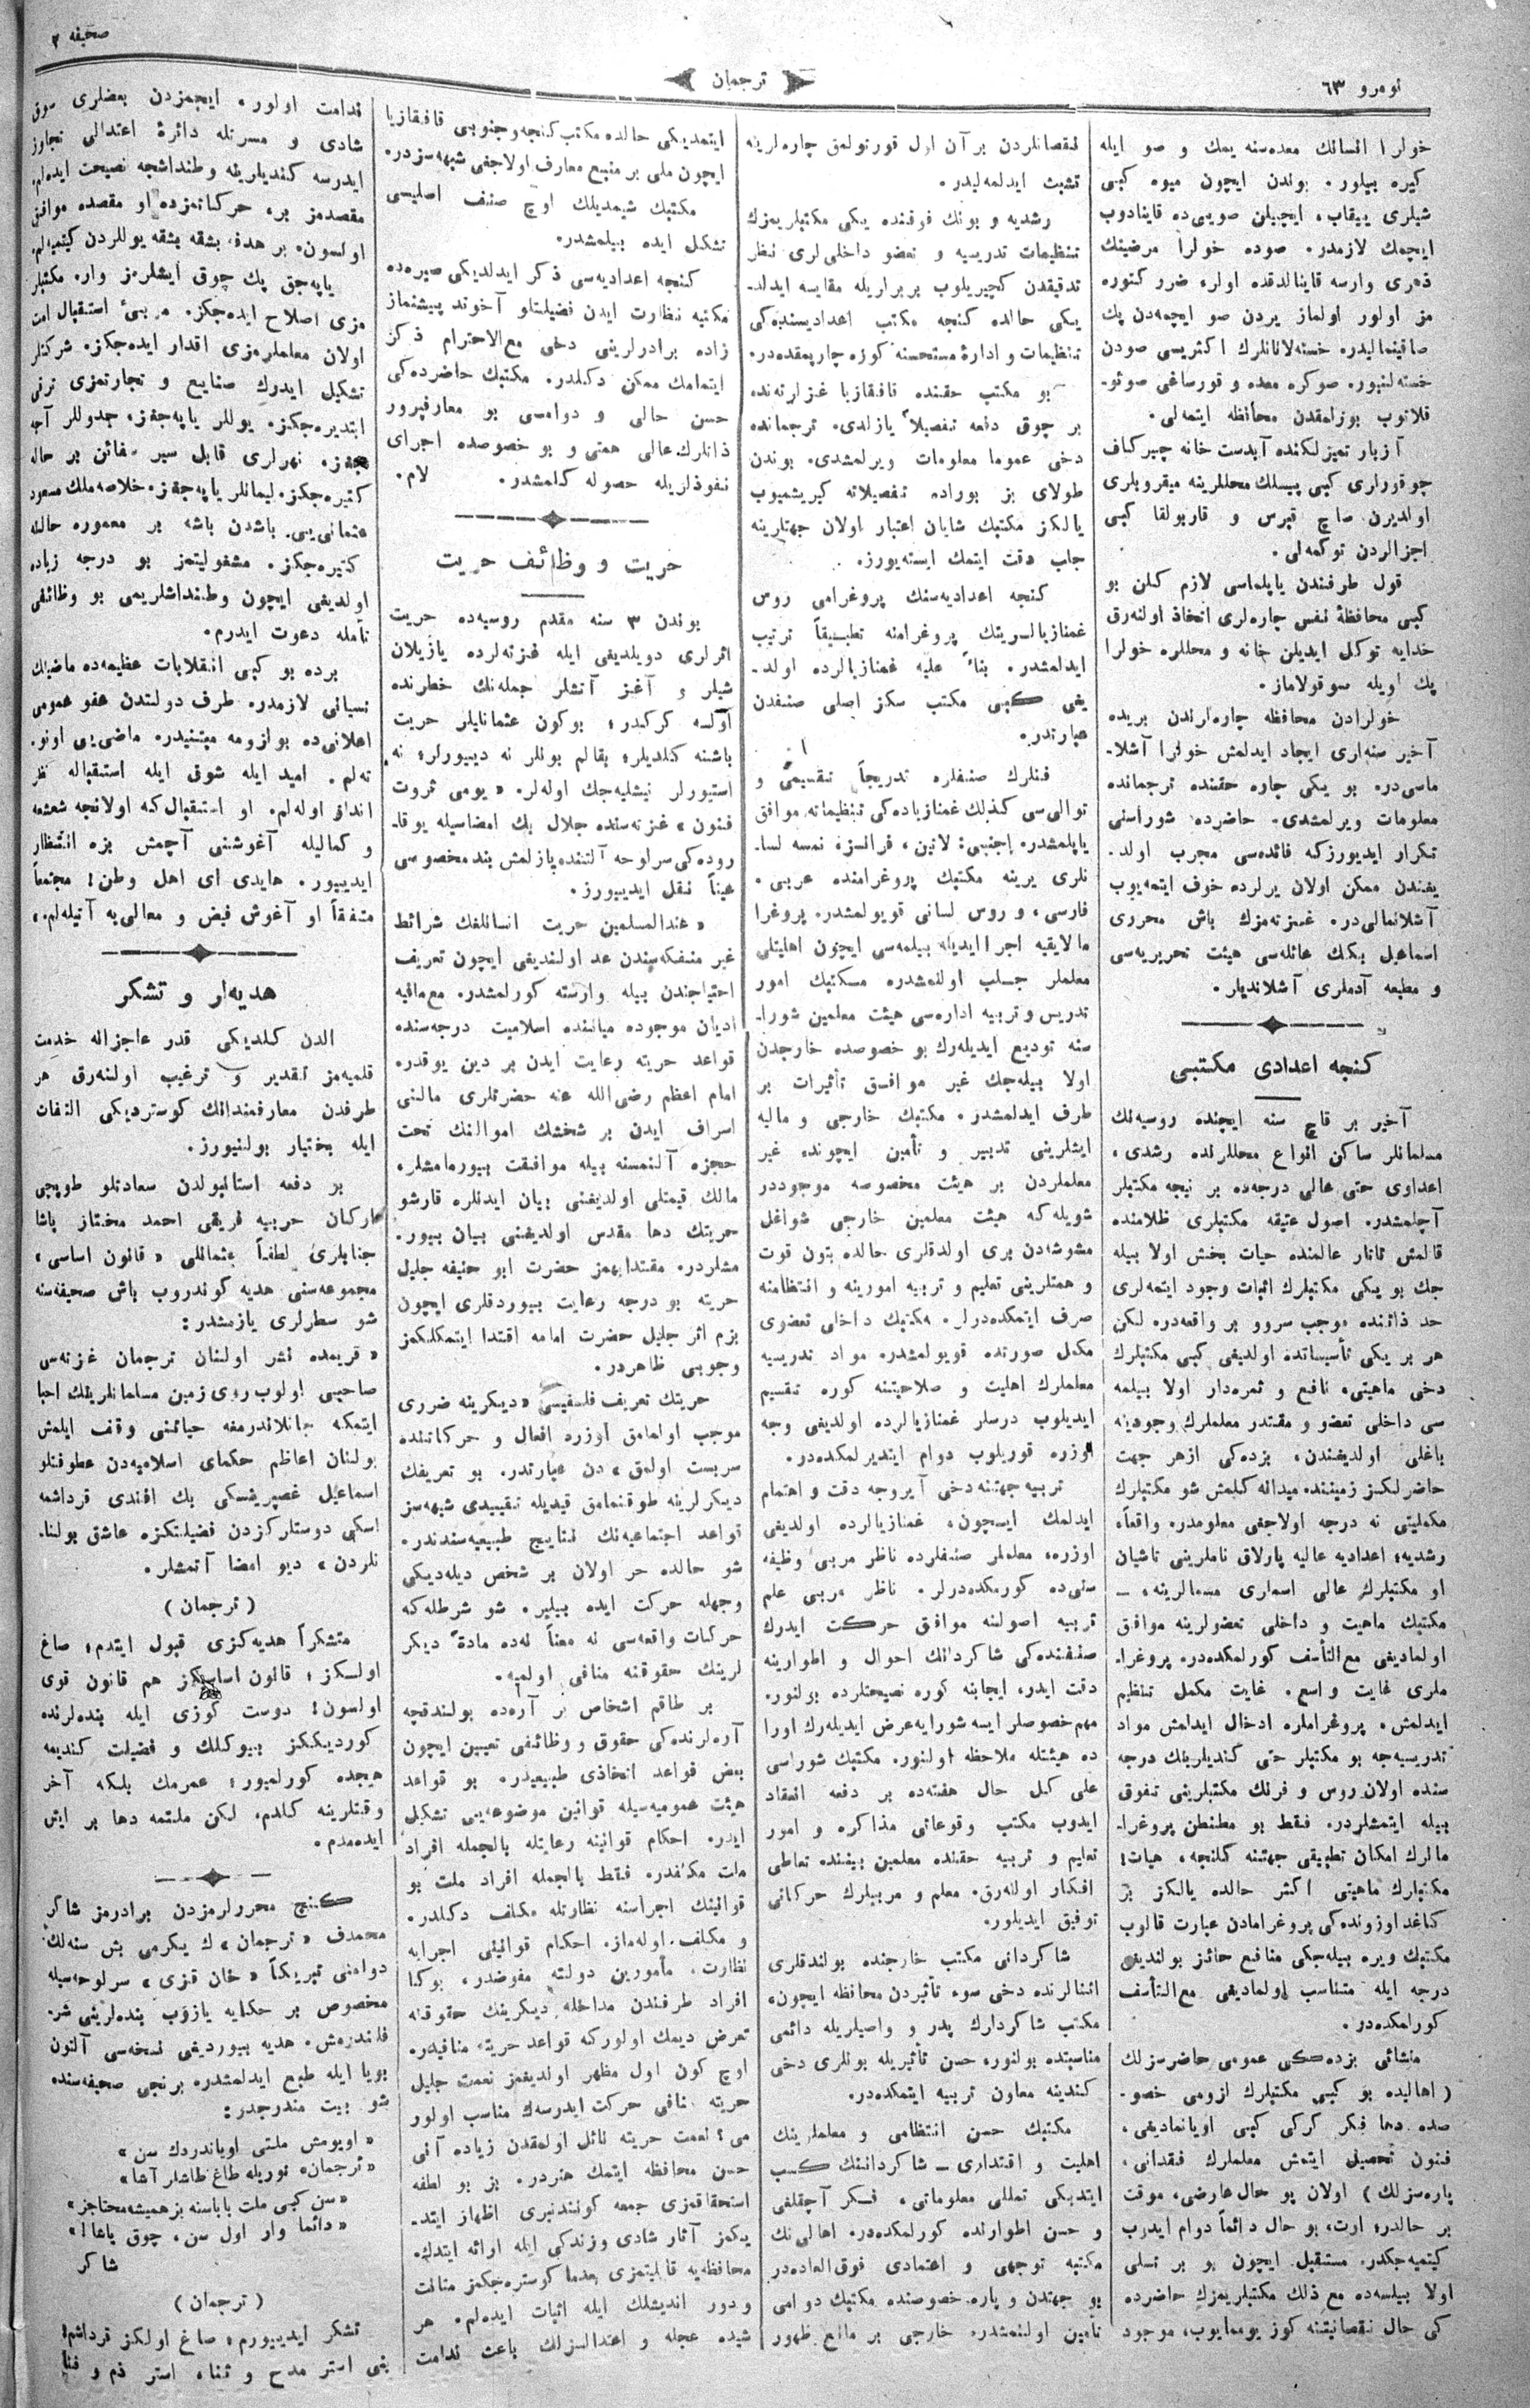 نومرو ٦٣
ترجمان
صحیفه ٢
خولرا انسانك معده‌سنه یمك و صو ایله
کیره بیلور. بوندن ایچون میوه کبی
شیلری ییقاب، ایچیلن صویی‌ده قاینادوب
ایچمك لازمدر. صوده خولرا مرضینك
ذهری وارسه قاینالدقده اولر، ضرر کتوره
مز اولور اولماز یردن صو ایچمه‌دن پك
صاقینمالیدر. خسته‌لانانلرك اکثریسی صودن
خسته‌لنیور. صوکره معده و قورساغی صوئو-
قلانوب بوزلمقدن محافظه ایتمه‌لی.
آزبار تمیزلکنده آبدست خانه چیرکاف
چوقورلری کبی پیسلك محللرینه میقروبلری
اولدیرن صاچ قبرس و قاربولقا کبی
اجزالردن توکمه‌لی.
قول طرفندن یاپلماسی لازم کلن بو
کبی محافظهٔ نفس چاره‌لری اتخاذ اولنه‌رق
خدایه توکل ایدیلن خانه و محللره خولرا
پك اویله سوقولاماز.
خولرادن محافظه چاره‌لرندن بریده
آخیر سنه‌لری ایجاد ایدلمش خولرا آشلا-
ماسی‌در. بو یکی چاره حقنده ترجمانده
معلومات ویرلمشدی. حاضرده شوراسنی
تکرار ایدیورزکه فائده‌سی مجرب اولد-
یغندن ممکن اولان یرلرده خوف ایتمه‌یوب
آشلانمالی‌در. غزته‌مزك باش محرری
اسماعیل بکك عائله‌سی هیئت تحریریه‌سی
و مطبعه آدملری آشلاندیلر.
کنجه اعدادی مکتبی
آخیر بر قاچ سنه ایچنده روسیه‌نك
مسلمانلر ساکن انواع محللرنده رشدی،
اعدادی حتی عالی درجه‌ده بر نیجه مکتبلر
آچلمشدر. اصول عتیقه مکتبلری ظلامنده
قالمش تاتار عالمنده حیات بخش اولا بیله
جك بو یکی مکتبلرك اثبات وجود ایتمه‌لری
حد ذاتنده موجب سرور بر واقعه‌در. لکن
هر بر یکی تأسیساتده اولدیغی کبی مکتبلرك
دخی ماهیتی، نافع و ثمره‌دار اولا بیلمه
سی داخلی تعضو و مقتدر معلملرك وجودینه
باغلی اولدیغندن، بزده‌کی ازهر جهت
حاضرلکسز زمیننده میدانه کلمش شو مکتبلرك
مکملیتی نه درجه اولاجغی معلومدر. واقعاً،
رشدیه، اعدادیه عالیه پارلاق ناملرینی تاشیان
او مکتبلرك عالی اسملری مسمالرینه، —
مکتبك ماهیت و داخلی تعضولرینه موافق
اولمادیغی مع التأسف کورلمکده‌در. پروغرا-
ملری غایت واسع. غایت مکمل تنظیم
ایدلمش. پروغراملره ادخال ایدلمش مواد
تدریسیه‌جه بو مکتبلر حتی کندیلرینك درجه
سنده اولان روس و فرنك مکتبلرینی تفوق
بیله ایتمشلردر. فقط بو مطنطن پروغرا-
مالرك امکان تطبیقی جهتنه کلنجه، هیات!
مکتبلرك ماهیتی اکثر حالده یالکز بر
کاغد اوزونده‌کی پروغرامادن عبارت قالوب
مکتبك ویره بیله‌جکی منافع حائز بولندیغی
درجه ایله متناسب اولمادیغی مع التأسف
کورلمکده‌در.
منشائی بزده‌کی عمومی حاضرسزلك
( اهالیده بو کبی مکتبلرك لزومی خصو-
صده دها فکر کرکی کبی اویانمادیغی،
فنون تحصیل ایتمش معلملرك فقدانی،
پاره‌سزلك ) اولان بو حال عارضی، موقت
بر حالدر. ارت، بو حال دائماً دوام ایدرب
کیتمیه‌جکدر. مستقبل ایچون بو بر تسلی
اولا بیلسه‌ده مع ذلك مکتبلریمزك حاضرده
کی حال نقصانیتنه کوز یومیایوب، موجود
نقصانلردن بر آن اول قورتولمق چاره‌لرینه
تشبث ایدلمه‌لیدر.
رشدیه و بونك فوقنده یکی مکتبلریمزك
تنظیمات تدریسیه و تعضو داخلی‌لری نظر
تدقیقدن کچیریلوب بربراریله مقایسه ایدلد-
یکی حالده کنجه مکتب اعدادیسنده‌کی
تنظیمات و ادارهٔ مستحسنه کوزه چارپمقده‌در.
بو مکتب حقنده قافقازیا غزلرته‌نده
بر چوق دفعه تفصیلاً یازلدی. ترجمانده
دخی عموما معلومات ویرلمشدی. بوندن
طولای بز بوراده تفصیلاته کیریشمیوب
یالکز مکتبك شایان اعتبار اولان جهتارینه
جاب دقت ایتمك ایسته‌یورز.
کنجه اعدادیه‌سنك پروغرامی روس
غمنازیالرینك پروغرامنه تطبیقاً ترتیب
ایدلمشدر. بناءً علیه غمنازیالرده اولد-
یغی کبی مکتب سکز اصلی صنفدن
عبارتدر.
فنلرك صنفلره تدریجاً تقسیمی و
توالی‌سی کذلك غمنازیاده‌کی تنظیماته موافق
یاپلمشدر. اجنبی: لاتین، فرانسز، نمسه لسا-
نلری یرینه مکتبك پروغرامنده عربی،
فارسی، و روس لسانی قویولمشدر. پروغرا
مالایقیه اجرا ایدیله بیلمه‌سی ایچون اهلیتلی
معلملر جلب اولنمشدر. مکتبك امور
تدریس و تربیه اداره‌سی هیئت معلمین شورا-
سنه تودیع ایدیله‌رك بو خصوصده خارجدن
اولا بیله‌جك غیر موافق تأثیرات بر
طرف ایدلمشدر. مکتبك خارجی و مالیه
ایشلرینی تدبیر و تأمین ایچونده غیر
معلملردن بر هیئت مخصوصه موجوددر
شویله‌که هیئت معلمین خارجی شواغل
مشوشه‌دن بری اولدقلری حالده بتون قوت
و همتلرینی تعلیم و تربیه امورینه و انتظامنه
صرف ایتمکده‌درلر. مکتبك داخلی تعضوی
مکمل صورتده قویولمشدر. مواد تدریسیه
معلملرك اهلیت و صلاحیتنه کوره تقسیم
ایدیلوب درسلر غمنازیالرده اولدیغی وجه
اوزره قوریلوب دوام ایتدیرلمکده‌در.
تربیه جهتنه دخی آیروجه دقت و اهتمام
ایدلمك ایچون، غمنازیالرده اولدیغی
اوزره، معلملر صنفلرده ناظر مربی وظیفه
سنی‌ده کورمکده‌درلر. ناظر مربی علم
تربیه اصولنه موافق حرکت ایدرك
صنفنده‌کی شاکردانك احوال و اطوارینه
دقت ایدر، ایجابنه کوره نصیحتلرده بولنور.
مهم خصوصلر ایسه شورایه عرض ایدیله‌رك اورا
ده هیئتله ملاحظه اولنور. مکتبك شوراسی
علی کل حال هفته‌ده بر دفعه انعقاد
ایدوب مکتب وقوعاتی مذاکره و امور
تعلیم و تربیه حقنده معلمین بیننده تعاطی
افکار اولنه‌رق. معلم و مربیلرك حرکاتی
توفیق ایدیلور.
شاکردانی مکتب خارجنده بولندقلری
اثنالرنده دخی سوء تأثیردن محافظه ایچون،
مکتب شاکردارك پدر و واصیلریله دائمی
مناسبتده بولنور، حسن تأثیریله بونلری دخی
کندینه معاون تربیه ایتمکده‌در.
مکتبك حسن انتظامی و معلملرینك
اهلیت و اقتداری — شاکرداننك کسب
ایتدیکی تمللی معلوماتی، فکر آچقلغی
و حسن اطوارنده کورلمکده‌در. اهالی‌نك
مکتبه توجهی و اعتمادی فوق العاده‌در
بو جهتدن و پاره خصوصنده مکتبك دوامی
تأمین اولنمشدر. خارجی بر مانع ظهور
ایتمدیکی حالده مکتب کنجه و جنوبی قافقازیا
ایچون ملی بر منبع معارف اولاجغی شبهه‌سزدر.
مکتبك شیمدیلك اوچ صنف اصلیسی
تشکل ایده بیلمشدر.
کنجه اعدادیه‌سی ذکر ایدلدیکی صیره‌ده
مکتبه نظارت ایدن فضیلتلو آخوند پیشنماز
زاده برادرلرینی دخی مع الاحترام ذکر
ایتمامك ممکن دکلدر. مکتبك حاضرده‌کی
حسن حالی و دوامی بو معارفپرور
ذاتلرك عالی همتی و بو خصوصده اجرای
نفوذلریله حصوله کلمشدر. لام.
حریت و وظائف حریت
بوندن ٣ سنه مقدم روسیه‌ده حریت
اثرلری دویلدیغی ایله غزته‌لرده یازیلان
شیلر و آغز آتشلر جمله‌نك خطرنده
اولسه کرکدر، بوکون عثمانلیلر حریت
باشنه کلدیلر، بقالم بونلر نه دییورلر، نه
استیورلر نیشلیه‌جك اوله‌لر. «یومی ثروت
فنون» غزته‌سنده جلال بك امضاسیله یوقا-
روده‌کی سراوحه آلتنده یازلمش بند مخصوصی
عیناً نقل ایدییورز.
« عندالمسلمین حریت انسانلغك شرائط
غیر منفکه‌سندن عد اولندیغی ایچون تعریف
احتیاجندن بیله وارسته کورلمشدر. مع‌مافیه
ادیان موجوده میاننده اسلامیت درجه‌سنده
قواعد حریته رعایت ایدن بر دین یوقدر.
امام اعظم رضی‌الله عنه حضرتلری مالنی
اسراف ایدن بر شخصك اموالنك تحت
حجزه آلنمسنه بیله موافقت بیورمامشلر،
مالك قیمتلی اولدیغنی بیان ایدنلره قارشو
حریتك دها مقدس اولدیغنی بیان بیور-
مشلردر. مقتدابهمز حضرت ابو حنیفه جلیل
حریته بو درجه رعایت بیوردقلری ایچون
بزم اثر جلیل حضرت امامه اقتدا ایتمکلکمز
وجوبی ظاهردر.
حریتك تعریف فلسفیسی «دیکرینه ضرری
موجب اولمامق اوزره افعال و حرکاتنده
سربست اولمق» دن عبارتدر. بو تعریفك
دیکرلرینه طوقنمامق قیدیله تقییدی شبهه‌سز
قواعد اجتماعیه‌نك نتایج طبیعیه‌سندندر.
شو حالده حر اولان بر شخص دیله‌دیکی
وجهله حرکت ایده بیلیر. شو شرطله‌که
حرکات واقعه‌سی نه معناً نه‌ده مادةً دیکر
لرینك حقوقنه منافی اولمیه.
بر طاقم اشخاص بر آره‌ده بولندقچه
آره‌لرنده‌کی حقوق و وظائفی تعیین ایچون
بعض قواعد اتخاذی طبیعیدر. بو قواعد
هیئت عمومیه‌سیله قوانین موضوعه‌یی تشکیل
ایدر. احکام قوانینه رعایتله بالجمله افراد
ملت مکلفدر. فقط بالجمله افراد ملت بو
قوانینك اجراسنه نظارتله مکلف دکلدر.
و مکلف اوله‌ماز. احکام قوانینی اجرایه
نظارت، مأمورین دولته مفوضدر، بوکا
افراد طرفندن مداخله دیکرینك حقوقنه
تعرض دیمك اولورکه قواعد حریته منافیدر.
اوچ کون اول مظهر اولدیغمز نعمت جلیل
حریته منافی حرکت ایدرسه‌ك مناسب اولور
می؟ نعمت حریته نائل اولمقدن زیاده آنی
حسن محافظه ایتمك هنردر. بز بو لطفه
استحقاقمزی جمعه کونندنبری اظهار ایتد-
یکمز آثار شادی و زندکی ایله ارائه ایتدك.
محافظه‌یه قابلیتمزی بعدما کوستره‌جکمز متانت
و دور اندیشلك ایله اثبات ایده‌لم. هر
شیده عجله و اعتدالسزلك باعث ندامت
ندامت اولور. ایچمزدن بعضلری سوق
شادی و مسرتله دائرهٔ اعتدالی تجاوز
ایدرسه کندیلرینه وطنداشجه نصیحت ایده‌لم.
مقصدمز بر، حرکاتمزده او مقصده موافق
اولسون. بر هدفه بشقه بشقه یوللردن کیتمیه‌لم.
یاپه‌جق پك چوق ایشلرمز وار. مکتبلر
مزی اصلاح ایده‌جکز. مربیٔ استقبال امت
اولان معلملرمزی اقدار ایده‌جکز. شرکتلر
تشکیل ایدرك صنایع و تجارتمزی ترقی
ایتدیره‌جکز. یوللر یاپه‌جغز. جدوللر آچه
جغز. نهرلری قابل سیر سفائن بر حاله
کتیره‌جکز. لیمانلر یاپه‌جغز. خلاصه ملك مسعود
عثمانی‌یی باشدن باشه بر معموره حالنه
کتیره‌جکز. مشغولیتمز بو درجه زیاده
اولدیغی ایچون وطنداشلریمی بو وظائفی
تأمله دعوت ایدرم.
برده بو کبی انقلابات عظیمه‌ده ماضینك
نسیانی لازمدر. طرف دولتدن عفو عمومی
اعلانی‌ده بو لزومه مبتنیدر. ماضی‌یی اونو-
ته‌لم. امید ایله شوق ایله استقباله نظر
انداز اوله‌لم. او استقبال که اولانجه شعشعه
و کمالیله آغوشنی آچمش بزه انتظار
ایدییور. هایدی ای اهل وطن! مجتمعاً
متفقاً او آغوش فیض و معالی‌یه آتیله‌لم.»
هدیه‌لر و تشکر
الدن کلدیکی قدر عاجزانه خدمت
قلمیه‌مز تقدیر و ترغیب اولنه‌رق هر
طرفدن معارفمندانك کوستردیکی التفات
ایله بختیار بولنیورز.
بر دفعه استانبولدن سعادتلو طوپجی
ارکان حربیه فریقی احمد مختار پاشا
جنابلری لطفاً عثمانلی «قانون اساسی»
مجموعه‌سنی هدیه کوندروب باش صحیفه‌سنه
شو سطرلری یازمشدر:
«قریمده نشر اولنان ترجمان غزته‌سی
صاحبی اولوب روی زمین مسلمانلرینك احیا
ایتمکه جانلاندرمغه حیاتنی وقف ایلمش
بولنان اعاظم حکمای اسلامیه‌دن عطوفتلو
اسماعیل غصپرینسکی بك افندی قرداشمه
اسکی دوستلرکزدن فضیلتکزه عاشق بولنا-
نلردن» دیو امضا آتمشلر.
( ترجمان )
متشکراً هدیه‌کزی قبول ایتدم، صاغ
اولسکز؛ قانون اساسیکز هم قانون قوی
اولسون! دوست کوزی ایله بنده‌لرنده
کوردیککز بیوکلك و فضیلت کندیمه
هیچده کورلمیور؛ عمرمك بلکه آخر
وقتلرینه کلدم، لکن ملتمه دها بر ایش
ایده‌مدم.
کنج محررلرمزدن برادرمز شاکر
محمدف «ترجمان»ك یکرمی بش سنه‌لك
دوامنی تبریکاً «خان قزی» سرلوحه‌سیله
مخصوص بر حکایه یازوب بنده‌لرینی شر-
فلندرمش. هدیه بیوردیغی نسخه‌سی آلتون
بویا ایله طبع ایدلمشدر. برنجی صحیفه‌سنده
شو بیت مندرجدر:
« اویومش ملتی اویاندردك سن »
«ترجمان» نوریله طاغ طاشلر آشا»
«سن کبی ملت باباسنه بز همیشه محتاجز»
« دائما وار اول سن، چوق یاشا!»
شاکر
( ترجمان )
تشکر ایدییورم، صاغ اولکز قرداشم!
بنی استر مدح و ثنا، استر ذم و فنا